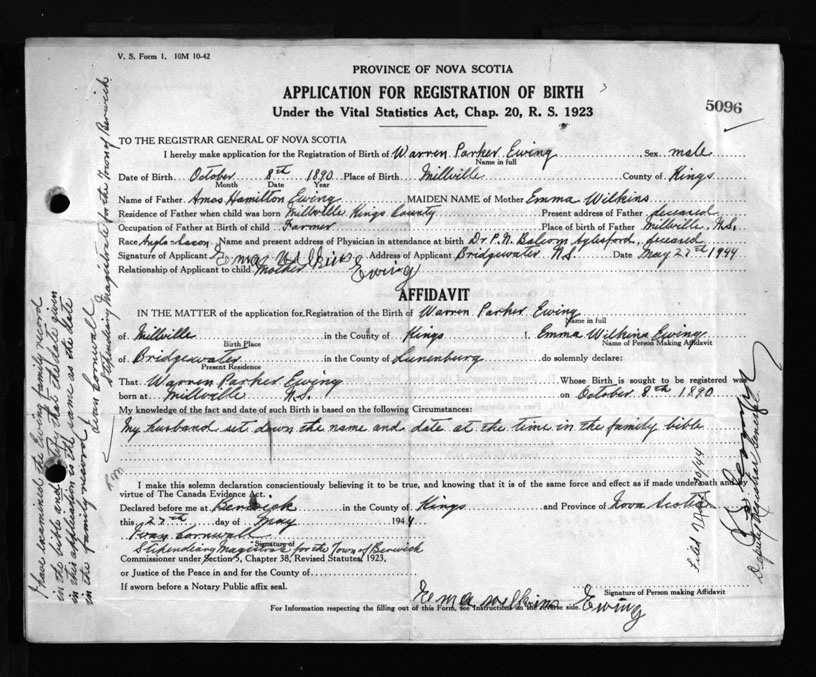 V. S. Form 1. 10M 10-42
PROVINCE OF NOVA SCOTIA
APPLICATION FOR REGISTRATION OF BIRTH
Under the Vital Statistics Act, Chap. 20, R. S. 1923
5096
TO THE REGISTRAR GENERAL OF NOVA SCOTIA
I hereby make application for the Registration of Birth of Warren Parker Ewing Sex male
Name in full
Date of Birth October 8th 1890 Place of Birth Millville County of Kings
Month Date Year
Name of Father Amos Hamilton Ewing MAIDEN NAME of Mother Emma Wilkins
Residence of Father when child was born Millville Kings County Present address of Father deceased
Occupation of Father at Birth of child Farmer Place of birth of Father Millville, N.S.
Race Anglo Saxon Name and present address of Physician in attendance at birth Dr. P. N. Balcom Aylesford, deceased
Signature of Applicant Emma Wilkins Ewing Address of Applicant Bridgewater N.S. Date May 27th 1944
Relationship of Applicant to child Mother
AFFIDAVIT
IN THE MATTER of the application for Registration of the Birth of Warren Parker Ewing
Name in full
of Millville in the County of Kings I, Emma Wilkins Ewing
Birth Place Name of Person Making Affidavit
of Bridgewater in the County of Lunenburg do solemnly declare:
Present Residence
That Warren Parker Ewing Whose Birth is sought to be registered was
born at Millville N.S. on October 8th 1890
My knowledge of the fact and date of such Birth is based on the following Circumstances:
My husband set down the name and date at the time in the family bible
I make this solemn declaration conscientiously believing it to be true, and knowing that it is of the same force and effect as if made under oath and
virtue of The Canada Evidence Act.
Declared before me at Berwick in the County of Kings and Province of Nova Scotia
this 27th day of May 1944
Cornwall
Signature of
Stipendiary Magistrate for the Town of Berwick
Commissioner under Section 5, Chapter 38, Revised Statutes, 1923,
or Justice of the Peace in and for the County of
If sworn before a Notary Public affix seal.
Emma Wilkins Ewing
Signature of Person making Affidavit
For Information respecting the filling out of this Form, see Instructions on the reverse side.
I have examined the Ewing family record
in the bible and that the date given
in this application is the same as the date
in the family record
Cornwall
Stipendiary Magistrate for the Town of Berwick
Filed
Deputy Registrar General